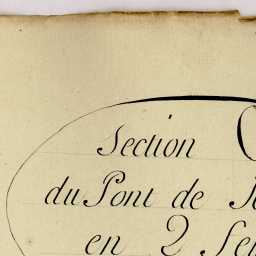 Section
du Pont de
en 2